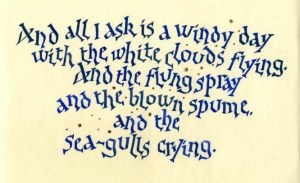 And all I ask is a windy day
with the white clouds flying.
And the flung spray
and the blown spume,
and the
sea-gulls crying.